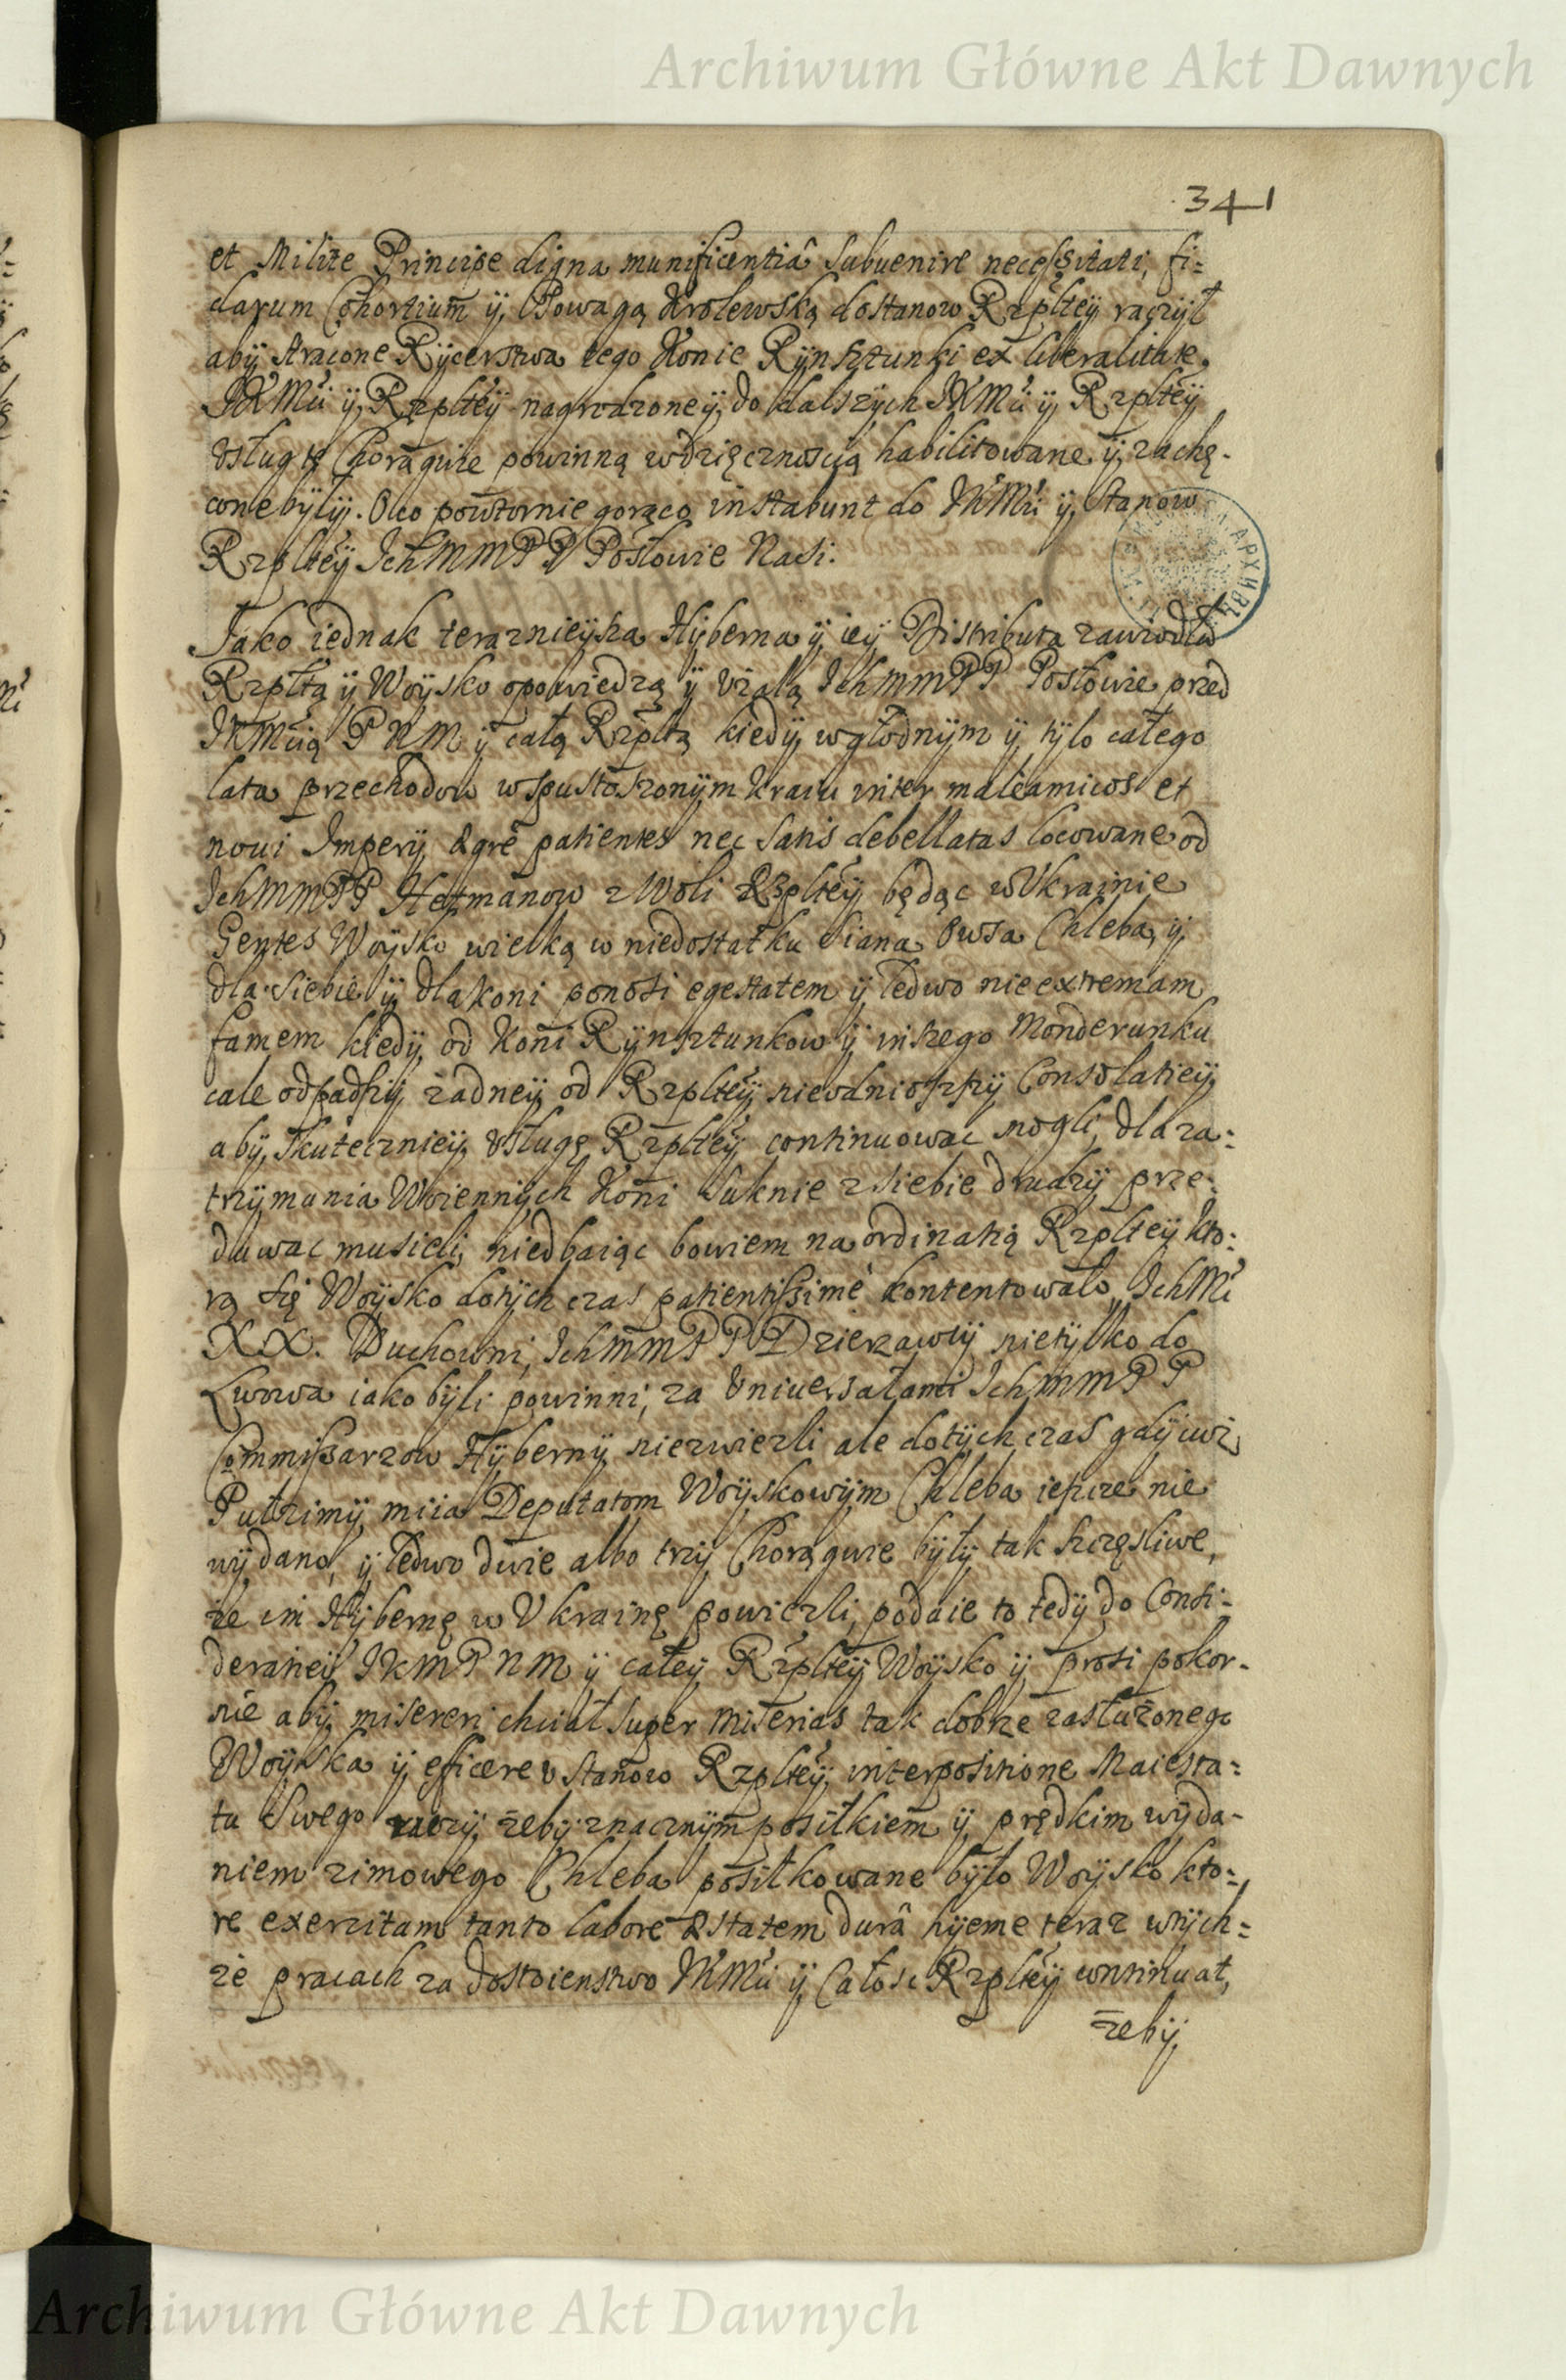 Archiwum Główne Akt Dawnych
341
et Milite Principe digna munificentiâ Subuenire necessitati, fi=
darum Cohortium ÿ Powagą Krolewską do stanow Rzpltey raczÿł
abÿ stracone Rÿcerstwa tego Konie Rÿnsztunki ex liberalitate
JKMci ÿ Rzpltey nagrodzone ÿ do dalszÿch JKMci ÿ Rzpltey
Vsług te Chorągwie powinną wdzięcznoscią habilitowane ÿ zachę-
cone bÿłÿ. Oco powtornie gorąco instabunt do JKMci ÿ Stanow
Rzpltey IchMMPP Posłowie Nasi.
Jako iednak teraznieÿsza Hÿberna ÿ ieÿ Distributa zawiodła
Rzpltą ÿ Woÿsko opowiedzą ÿ Vżalą IchMMPP Posłowie przed
JKMcią PNM ÿ całą Rzpltą kiedÿ w głodnÿm ÿ tÿlo całego
lata przechodow w spustoszonÿm kraiu inter maleamicos et
noui Imperÿ ægre patientes nec satis debellatas locowane od
IchMMPP Hetmanow z Woli Rzpltey będąc w Vkrainie
Gentes Woÿsko wielką w niedostatku Siana Owsa Chleba ÿ
dla siebie ÿ dla koni ponosi egestatem ÿ ledwo nie extremam
famem kiedÿ od Koni Rÿnsztunkow ÿ inszego Monderunku
cale odpadszÿ żadneÿ od Rzpltey nieodniozszÿ Consolatieÿ
abÿ skutecznieÿ Vsługę Rzpltey continuowac mogli, dla za=
trzÿmania Woiennÿch Koni Suknie z siebie drudzÿ prze-
dawac musieli, niedbaiąc bowiem na ordinatią Rzpltey kto=
rą się Woÿsko dotÿch czas patientissimè kontentowało IchMć
XX. Duchowni, IchMMPP Dzierzawcÿ nietÿlko do
Lwowa iako bÿli powinni, za Vniuersałami IchMMPP
Commissarzow Hÿbernÿ niezwiezli ale dotÿch czas gdÿ iuż
Pułzimÿ miia Deputatom Woÿskowÿm Chleba ieszcze nie
wÿdano, ÿ ledwo dwie albo trzÿ Chorągwie bÿłÿ tak szczęsliwe,
że im Hÿbernę w Vkrainę powiezli, podaie to tedÿ do Consi=
deratieÿ JKMPNM ÿ całeÿ Rzpltey Woÿsko ÿ prosi pokor-
nie abÿ misereri chciał super miserias tak dobrze zasłużonego
Woÿska ÿ eficere v Stanow Rzpltey interpositione Maiesta=
tu Swego raczÿ żebÿ znacznÿm posiłkiem ÿ prędkim wÿda-
niem zimowego Chleba posiłkowane bÿło Woÿsko kto=
re exercitam tanto labore æstatem durâ hÿeme teraz w tÿch=
że pracach za dostoienstwo JKMci ÿ Całosc Rzpltey continuat,
żebÿ
Archiwum Główne Akt Dawnych